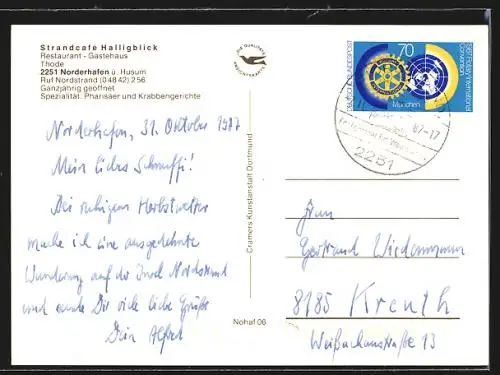 Strandcafé Halligblick
Restaurant - Gästehaus
Thode
2251 Norderhafen ü. Husum
Ruf Nordstrand (04842) 256
Ganzjährig geöffnet
Spezialität: Pharisäer und Krabbengerichte
Norderhafen, 31. Oktober 1987
Mein liebes Schnuffi!
Bei ruhigem Herbstwetter
mache ich eine ausgedehnte
Wanderung auf der Insel Nordstrand
und sende Dir viele liebe Grüße
Dein Alfred
Nohaf 06
Cramers Kunstanstalt Dortmund
DEUTSCHE BUNDESPOST
70
München
Rotary International
Convention
87-17
2251
Frau
Gertraud Wiedenmann
8185 Kreuth
Weißachaustraße 13